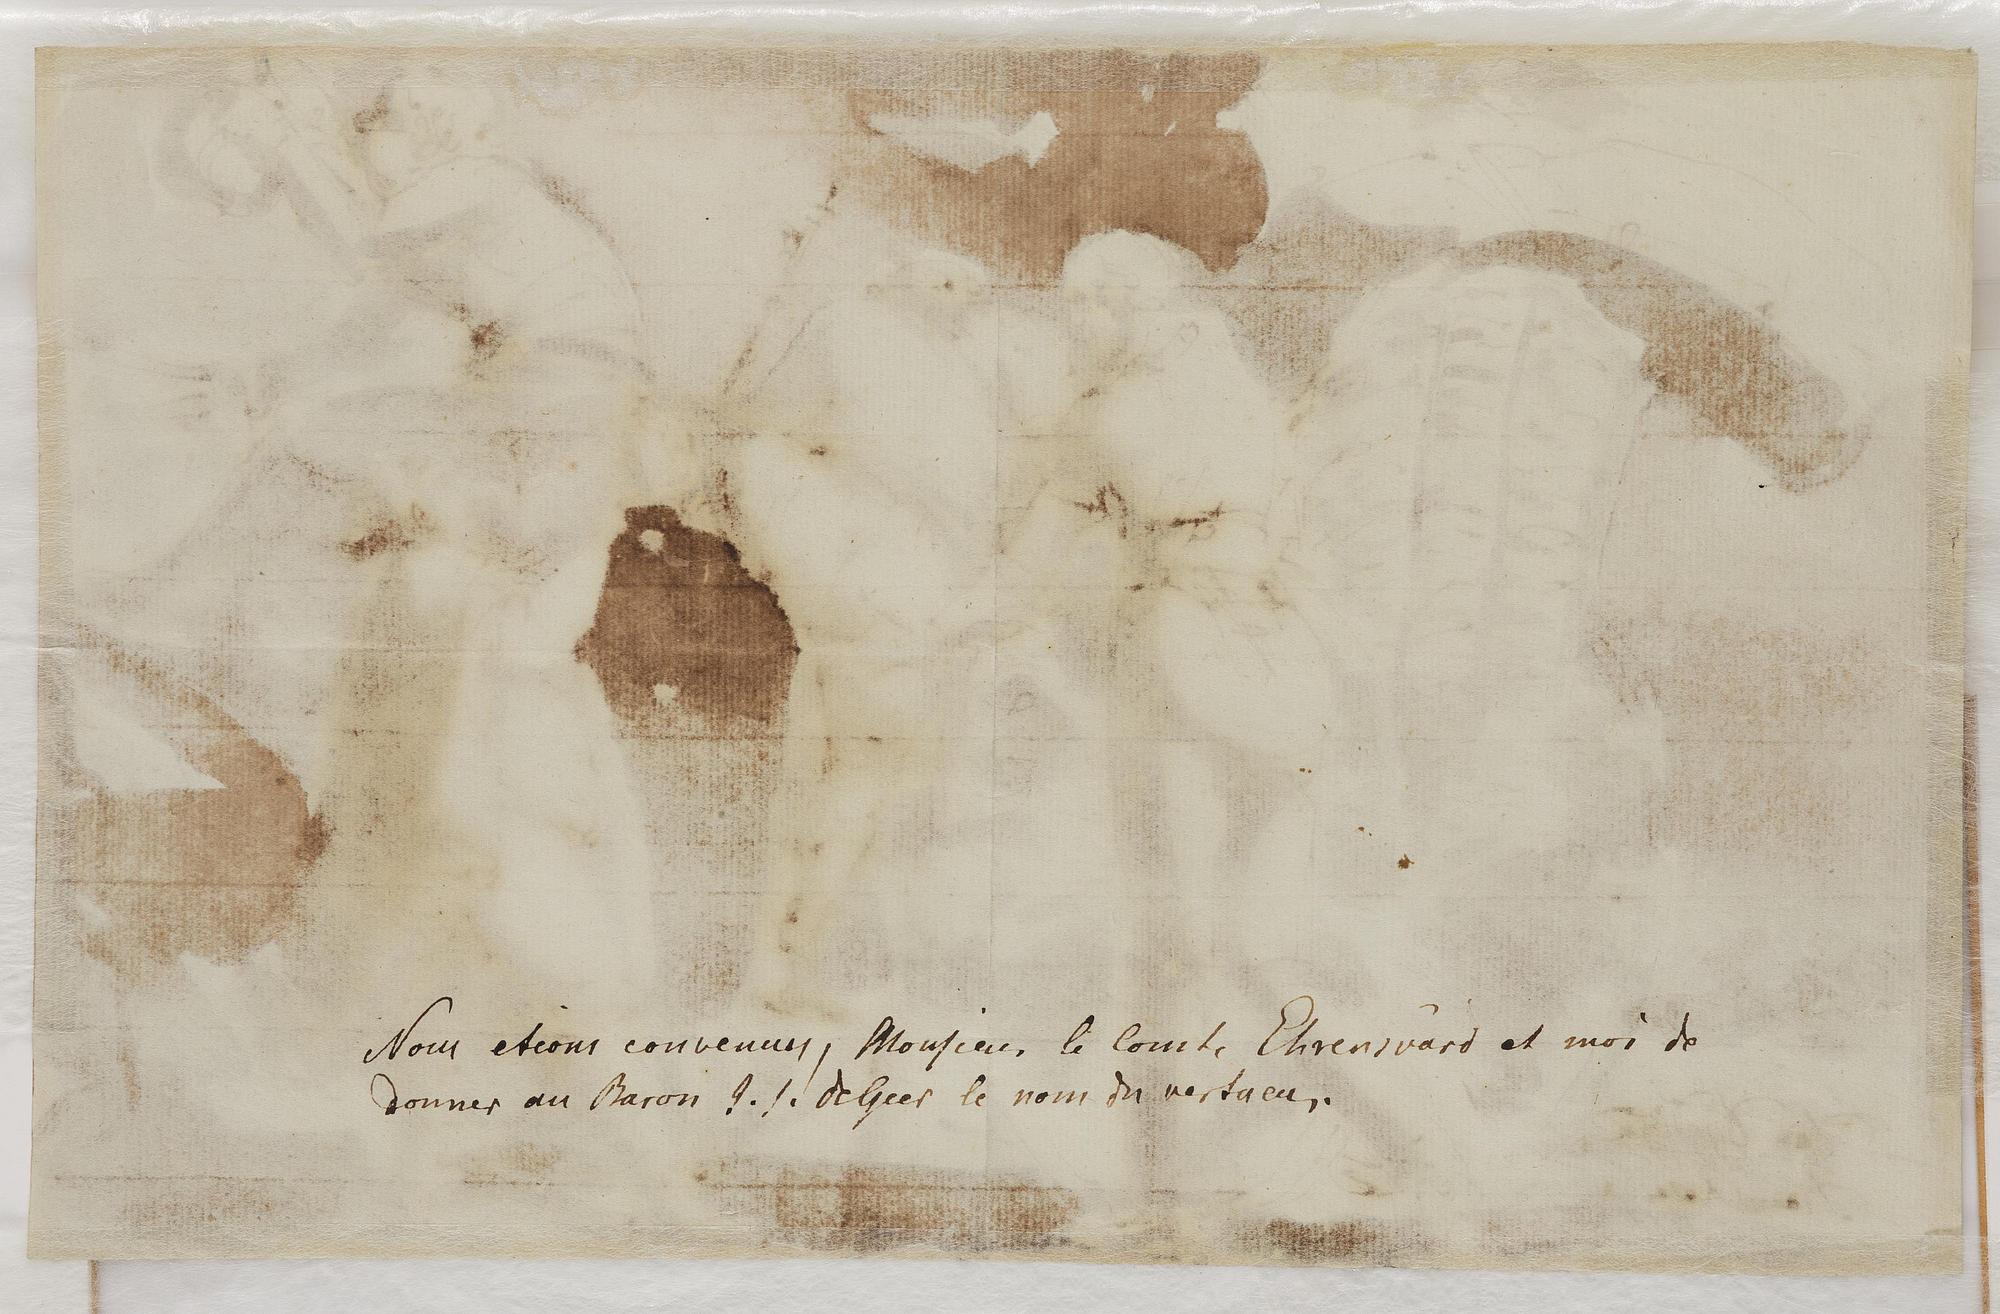 Nous etions convenus, Monsieur le Comte Ehrensvärd et moi de
donner au Baron J. J. deGeer le nom du vertueux.